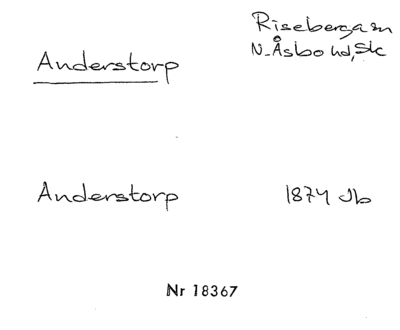 Riseberga sn
N. Åsbo hd, Sk
Anderstorp
Anderstorp 1874 Jb
Nr 18367